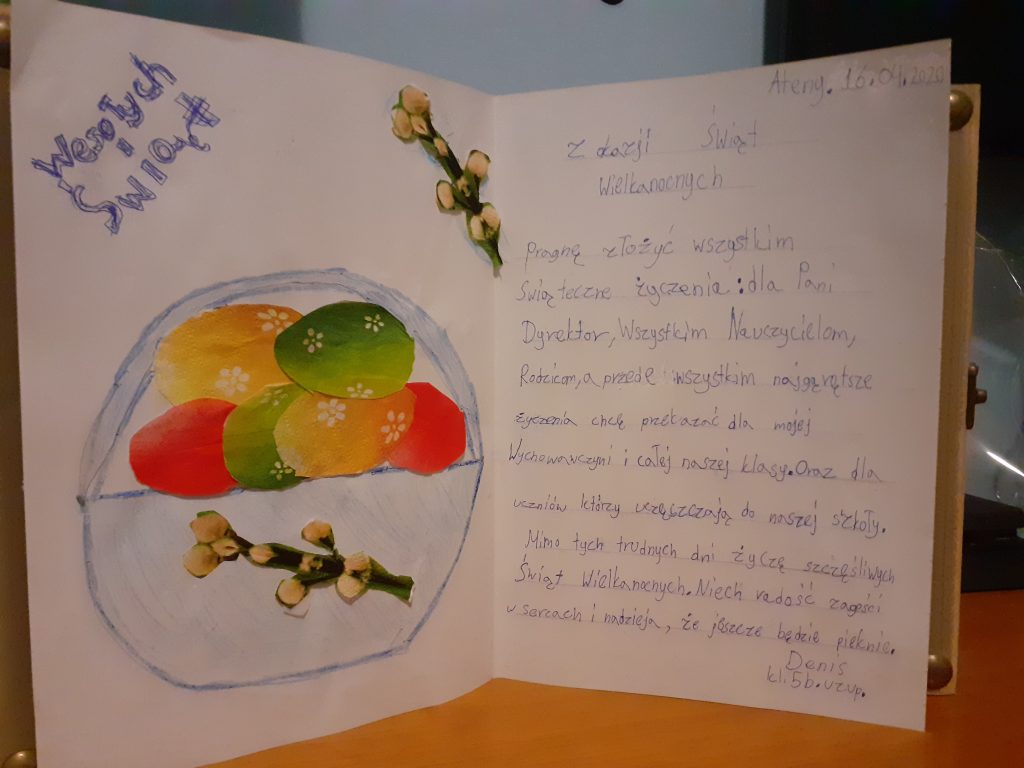 Wesołych
Świąt
Ateny. 16.04.2020
Z okazji Świąt
Wielkanocnych
Pragnę złożyć wszystkim
Świąteczne życzenia: dla Pani
Dyrektor, Wszystkim Nauczycielom,
Rodzicom, a przede wszystkim najgorętsze
życzenia chcę przekazać dla mojej
Wychowawczyni i całej naszej klasy. Oraz dla
uczniów którzy uczęszczają do naszej szkoły.
Mimo tych trudnych dni życzę szczęśliwych
Świąt Wielkanocnych. Niech radość zagości
w sercach i nadzieja, że jeszcze będzie pięknie.
Denis
kl. 5b. uzup.